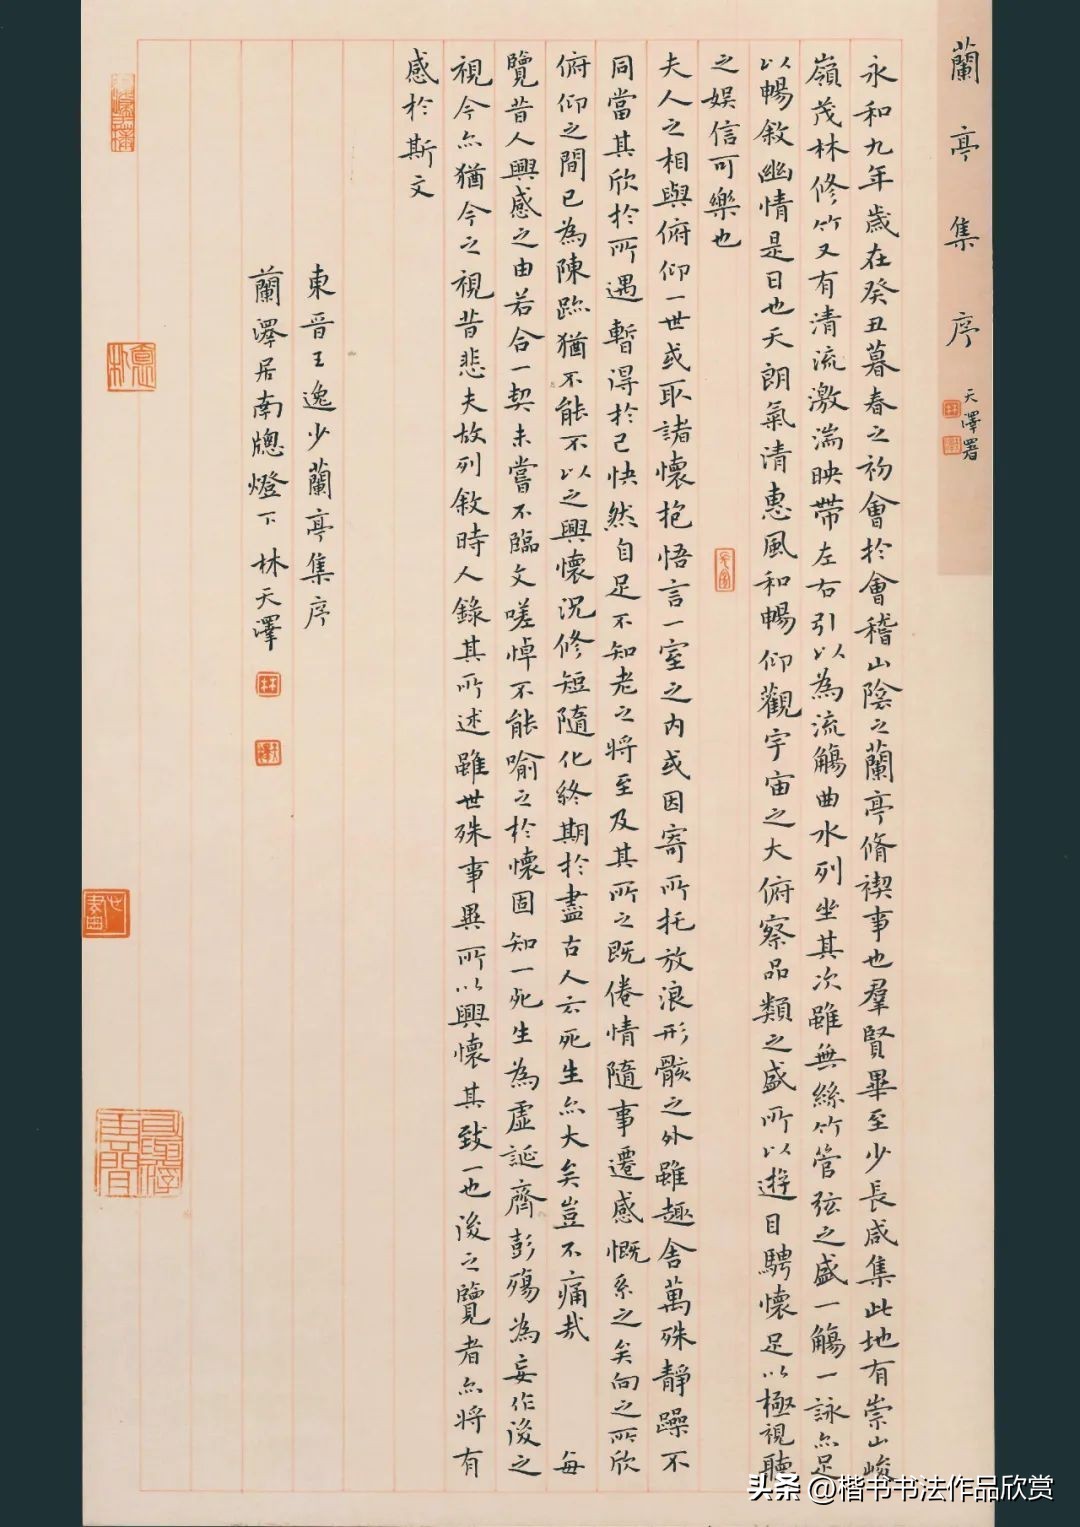 蘭亭集序
天澤署
永和九年歲在癸丑暮春之初會於會稽山陰之蘭亭脩禊事也羣賢畢至少長咸集此地有崇山峻
嶺茂林修竹又有清流激湍映帶左右引以為流觴曲水列坐其次雖無絲竹管弦之盛一觴一詠亦足
以暢敘幽情是日也天朗氣清惠風和暢仰觀宇宙之大俯察品類之盛所以遊目騁懷足以極視聽
之娛信可樂也
夫人之相與俯仰一世或取諸懷抱悟言一室之內或因寄所托放浪形骸之外雖趣舍萬殊靜躁不
同當其欣於所遇暫得於己快然自足不知老之將至及其所之既倦情隨事遷感慨系之矣向之所欣
俯仰之間已為陳跡猶不能不以之興懷況修短隨化終期於盡古人云死生亦大矣豈不痛哉 每
覽昔人興感之由若合一契未嘗不臨文嗟悼不能喻之於懷固知一死生為虛誕齊彭殤為妄作後之
視今亦猶今之視昔悲夫故列敘時人錄其所述雖世殊事異所以興懷其致一也後之覽者亦將有
感於斯文
東晉王逸少蘭亭集序
蘭澤居南牕燈下林天澤
头条 @楷书书法作品欣赏